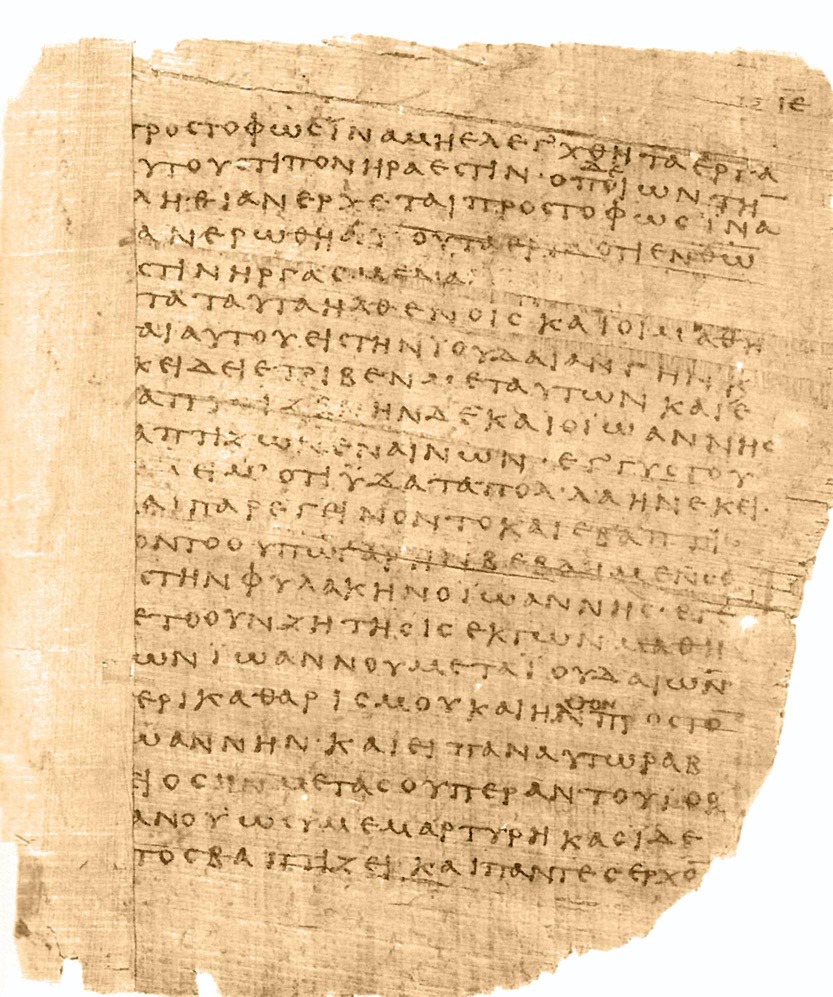 ΙΕ
ΠΡΟϹΤΟΦΩϹΪΝΑΜΗΕΛΕΓΧΘΗΤΑΕΡΓΑ
ΥΤΟΥΟΤΙΠΟΝΗΡΑΕϹΤΙΝ·ΟΔΕΠΟΙΩΝΤΗ̅
ΛΗΘΙΑΝΕΡΧΕΤΑΙΠΡΟϹΤΟΦΩϹΪΝΑ
ΑΝΕΡΩΘΗΑΥΤΟΥΤΑΕΡΓΑΟΤΙΕΝΘ̅Ω̅
ϹΤΙΝΗΡΓΑϹΜΕΝΑ
ΤΑΤΑΥΤΑΗΛΘΕΝΟΙϹΚΑΙΟΙΜΑΘΗ
ΑΙΑΥΤΟΥΕΙϹΤΗΝΪΟΥΔΑΙΑΝΓΗΝΚ
ΚΕΙΔΕΙΕΤΡΙΒΕΝΜΕΤΑΥΤΩΝΚΑΙΕ
ΑΠΤΙΖΕΝΗΝΔΕΚΑΙΟΪΩΑΝΝΗϹ
ΑΠΤΙΖΩΝΕΝΑΙΝΩΝ·ΕΓΓΥϹΤΟΥ
ΛΕΙΜΟΤΙΫΔΑΤΑΠΟΛΛΑΗΝΕΚΕΙ·
ΑΙΠΑΡΕΓΕΙΝΟΝΤΟΚΑΙΕΒΑΠΤΙ
ΟΝΤΟΟΥΠΩΓΑΡΗΝΒΕΒΛΗΜΕΝΟϹ
ϹΤΗΝΦΥΛΑΚΗΝΟΪΩΑΝΝΗϹ·ΕΓΕ
ΕΤΟΟΥΝΖΗΤΗϹΙϹΕΚΤΩΝΜΑΘΗ
ΩΝΪΩΑΝΝΟΥΜΕΤΑΪΟΥΔΑΙΩΝ̅
ΕΡΙΚΑΘΑΡΙϹΜΟΥΚΑΙΗΛΘΟΝΠΡΟϹΤΟ̅
ΩΑΝΝΗΝ·ΚΑΙΕΙΠΑΝΑΥΤΩΡΑΒ
ΕΙΟϹΗΝΜΕΤΑϹΟΥΠΕΡΑΝΤΟΥΪΟΡ
ΑΝΟΥΩϹΥΜΕΜΑΡΤΥΡΗΚΑϹΙΔΕ
ΤΟϹΒΑΠΤΙΖΕΙΚΑΙΠΑΝΤΕϹΕΡΧΟ̅